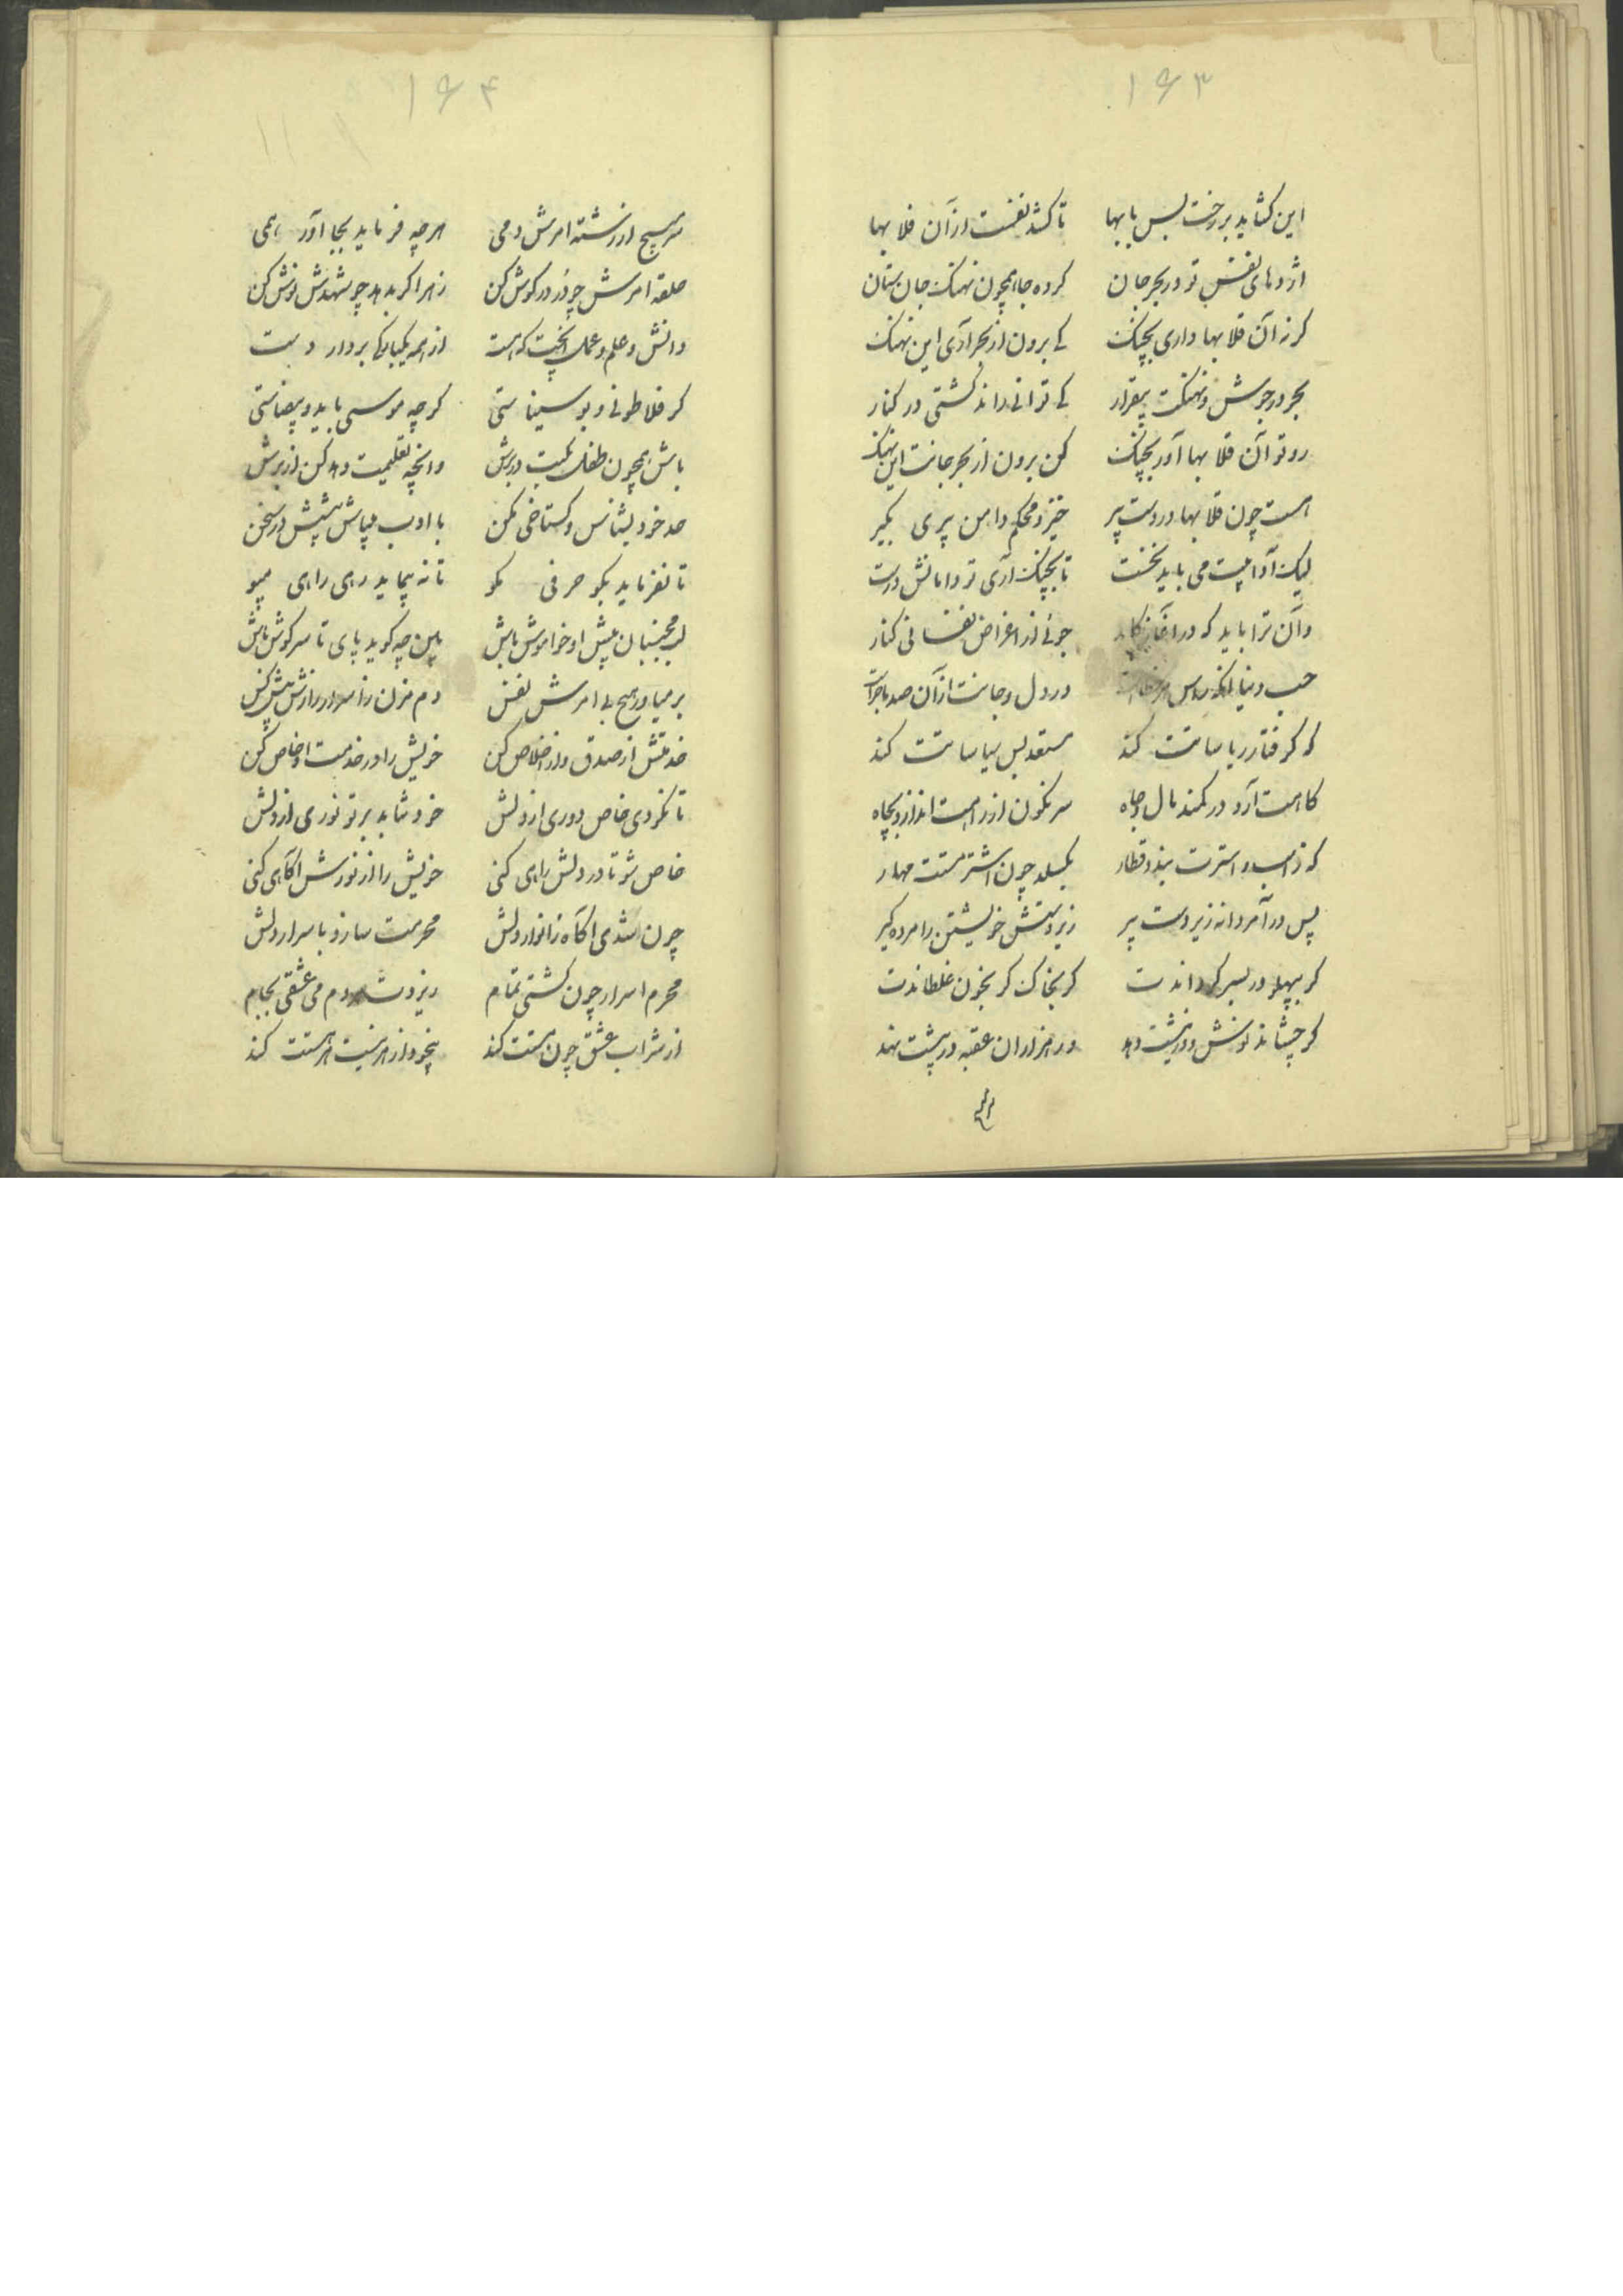 ۱۶۳
این کشاید بر رخت بس بابها تا کشد نفست از آن قلابها
اژدهای نفس تو در بحر جان کرده جا همچون نهنک جان ستان
کر نه آن قلابها داری بچنک کی برون از بحر آری این نهنک
بحر در جوش و نهنکت بیقرار کی توانی راند کشتی در کنار
رو تو آن قلابها آور بچنک کن برون از بحر جانت این نهنک
هست چون قلابها در دست پیر خیز و محکم دامن پیری بکیر
لیک آدابیت می باید نخست تا بچنک آری تو دامانش درست
وآن ترا باید که در آغاز کار جوئی از اغراض نفسانی کنار
حب دنیا آنکه راس هر خطاست در دل و جانت از آن صد ماجراست
که کرفتار ریاساتت کند مستعد بس سیاساتت کند
کاهت آرد در کمند مال و جاه سرنکون از راهت اندازد بچاه
که ز اسب و استرت بندد قطار بکسلد چون اشتر مستت مهار
پس درآ مردانه زیر دست پیر زیر دستش خویشتن را مرده کیر
کر بپهلو در بسر کرداندت کر بخاک کر بخون غلطاندت
کر چشاند نوش و ور نیشت دهد ور هزاران عقبه در پیشت نهد
۱۶۴
سر مپیچ از رشته امرش دمی هر چه فرماید بجا آور همی
حلقه امرش چو در در کوش کن زهر اکر بدهد چو شهدش نوش کن
دانش و علم و عمل آنچت که هست از همه یکبارکی بردار دست
کر فلاطونی و بو سیناستی کر چه موسی با ید و بیضاستی
باش همچون طفل مکتب در برش وانچه تعلیمت دهد کن از برش
حد خود بشناس و کستاخی مکن با ادب میباش پیشش در سخن
تا نفرماید بکو حرفی مکو تا نه پیماید رهی راهی مپو
لب مجنبان پیش او خواموش باش هین چه کوید پای تا سر کوش باش
بر میاور هیچ بی امرش نفس دم مزن ز اسرار رازش پیش کس
خدمتش از صدق و از اخلاص کن خویش را در خدمت او خاص کن
تا نکردی خاص دوری از دلش خود نتابد بر تو نوری از دلش
خاص شو تا در دلش راهی کنی خویش را از نورش آکاهی کنی
چون شدی آکاه ز انوار دلش محرمت سازد باسرار دلش
محرم اسرار چون کشتی تمام ریزدت دم می عشقی بجام
از شراب عشق چون مستت کند بیخود از هر نیست هر هستت کند